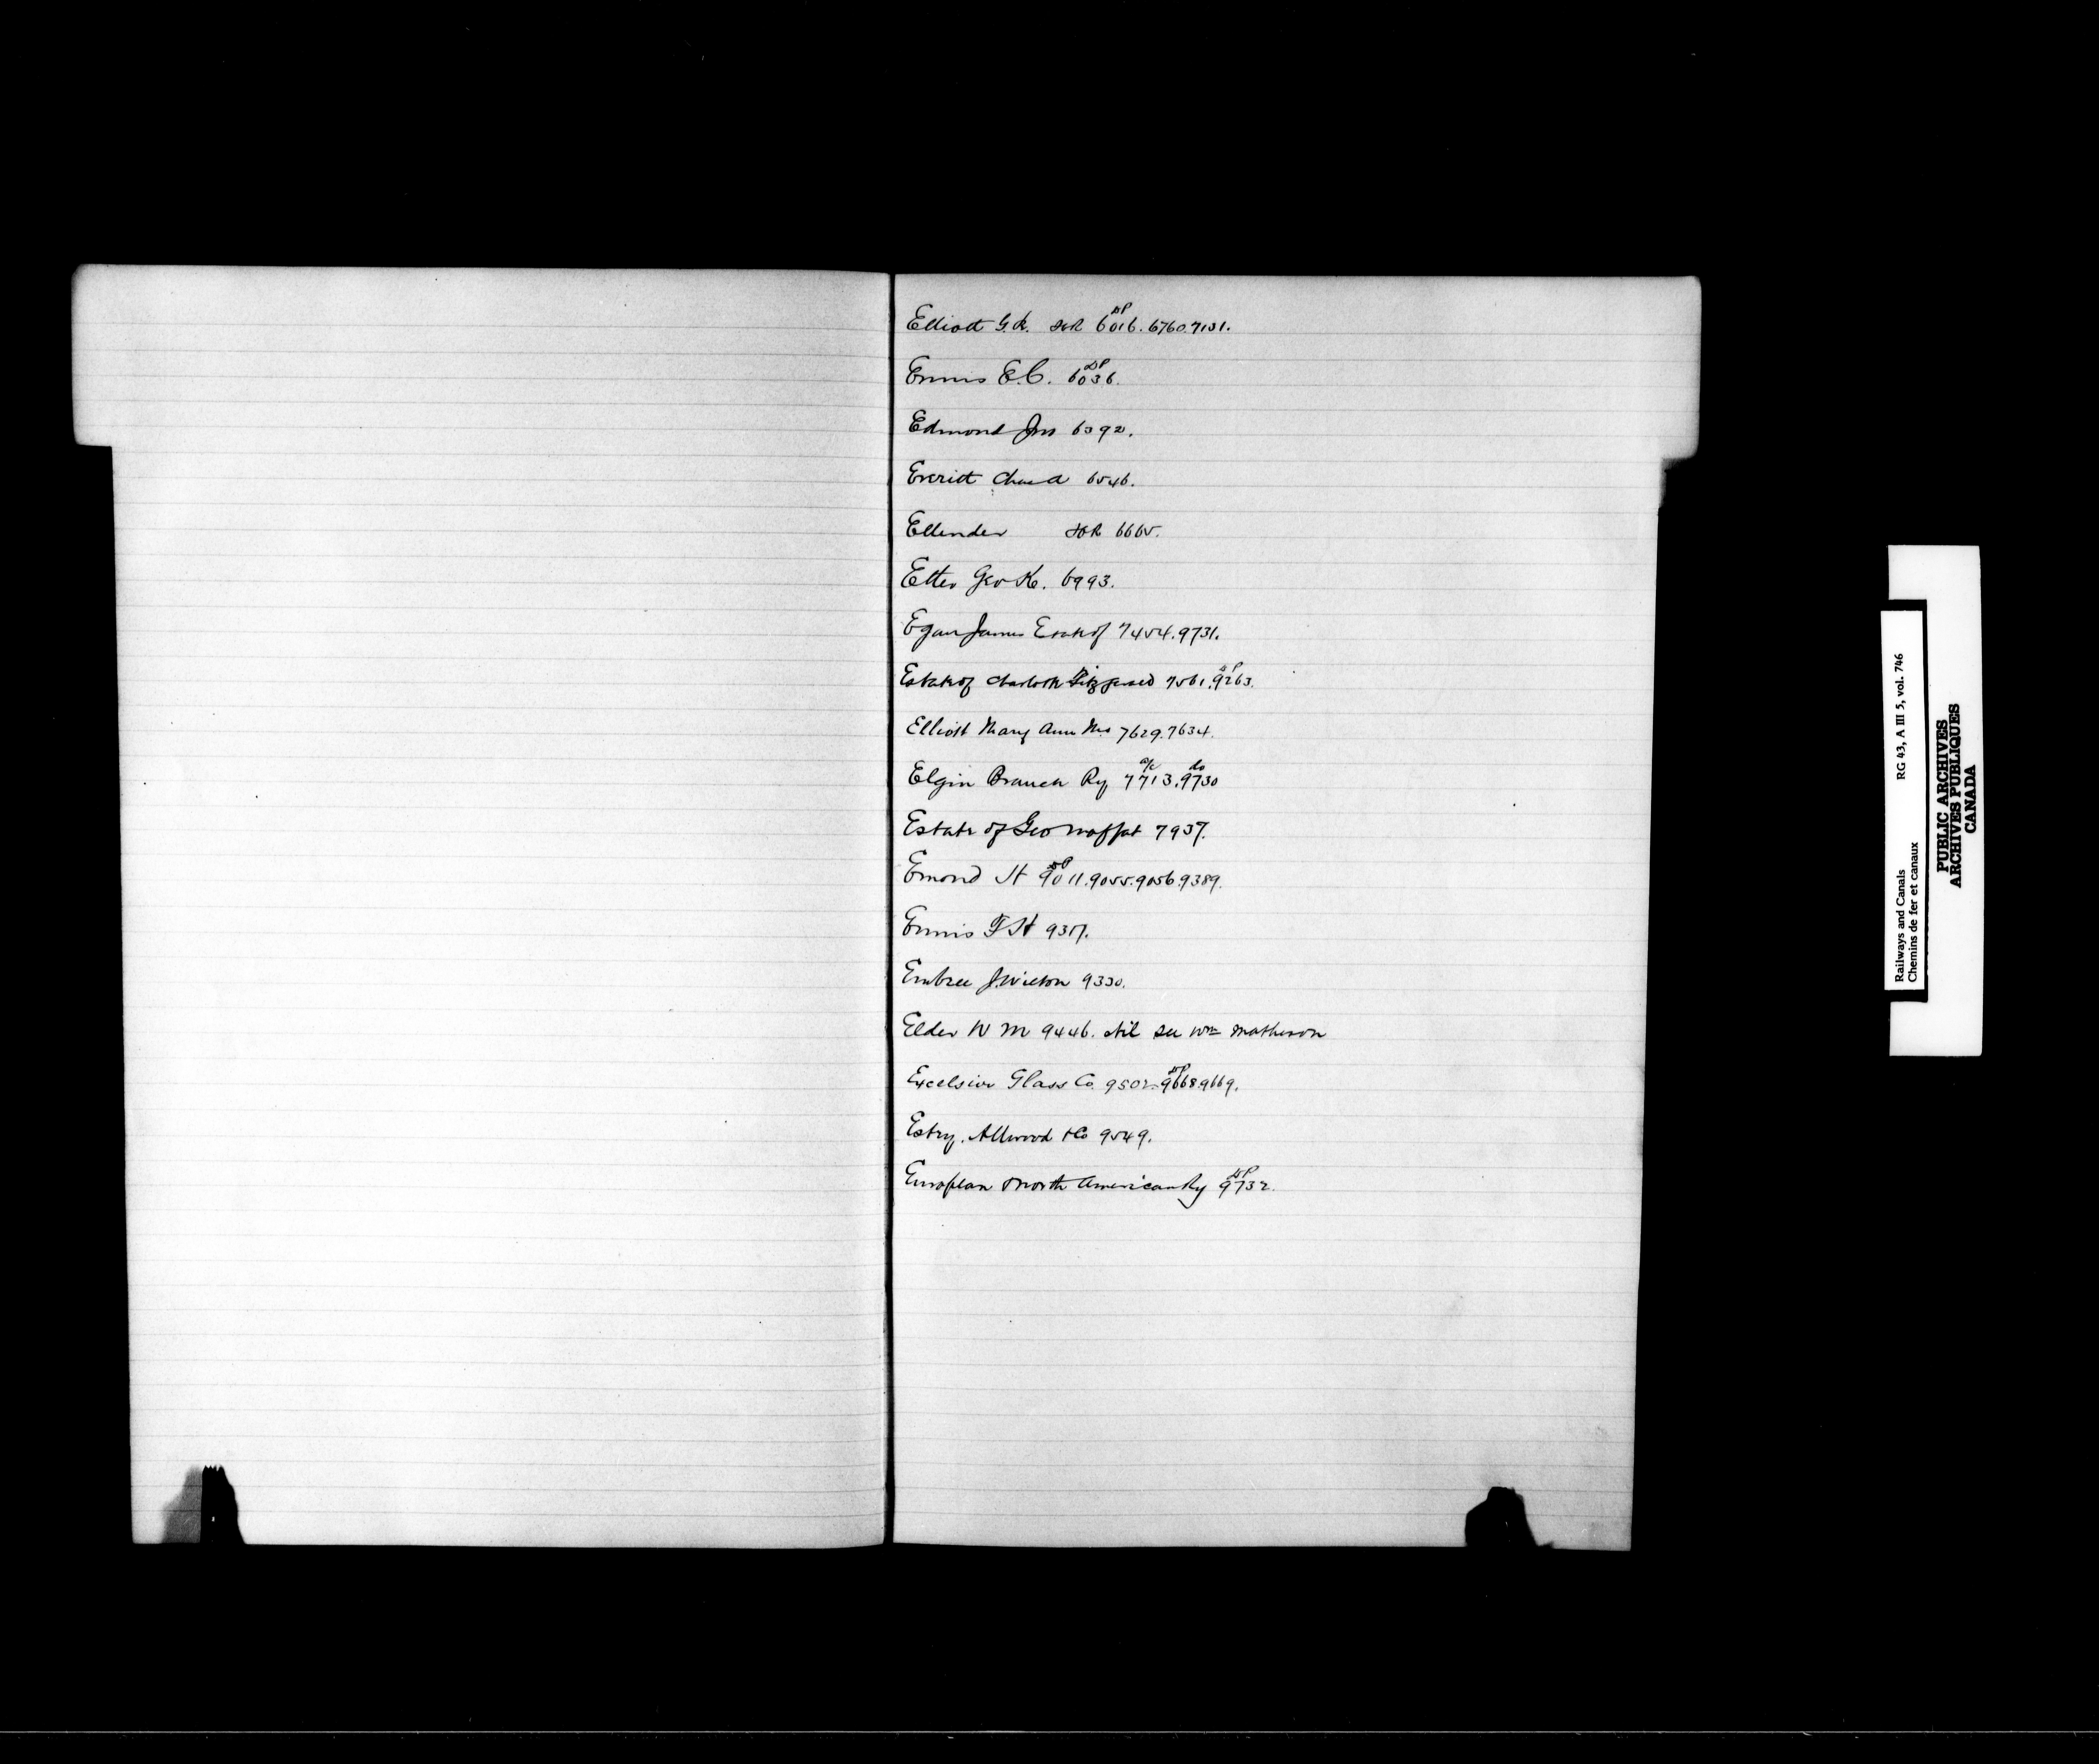 Elliott G.R. ICR 6016. 6760. 7131.
DP
Ennis E.C. 6036.
DP
Edmond Jno 6392.
Everitt Chas A 6546.
Ellender ICR 6665.
Etter Geo K. 6993.
Egan James Estate of 7454. 9731.
Estate of Charlotte Fitzgerald 7561. 9263.
DP
Elliott Mary Ann Mrs 7629. 7634.
Elgin Branch Ry 7713. 9730
a/c do
Estate of Geo Moffat 7937.
Emond H 9011. 9055. 9056. 9389.
DP
Ennis F H 9317.
Embree J. Wilton 9330.
Elder W M 9446. Nil see Wm Matheson
Excelsior Glass Co. 9502. 9668. 9669.
DP
Estry, Allwood & Co 9549.
European & North American Ry 9732.
DP
Railways and Canals RG 43, A III 5, vol. 746
Chemins de fer et canaux
PUBLIC ARCHIVES
ARCHIVES PUBLIQUES
CANADA